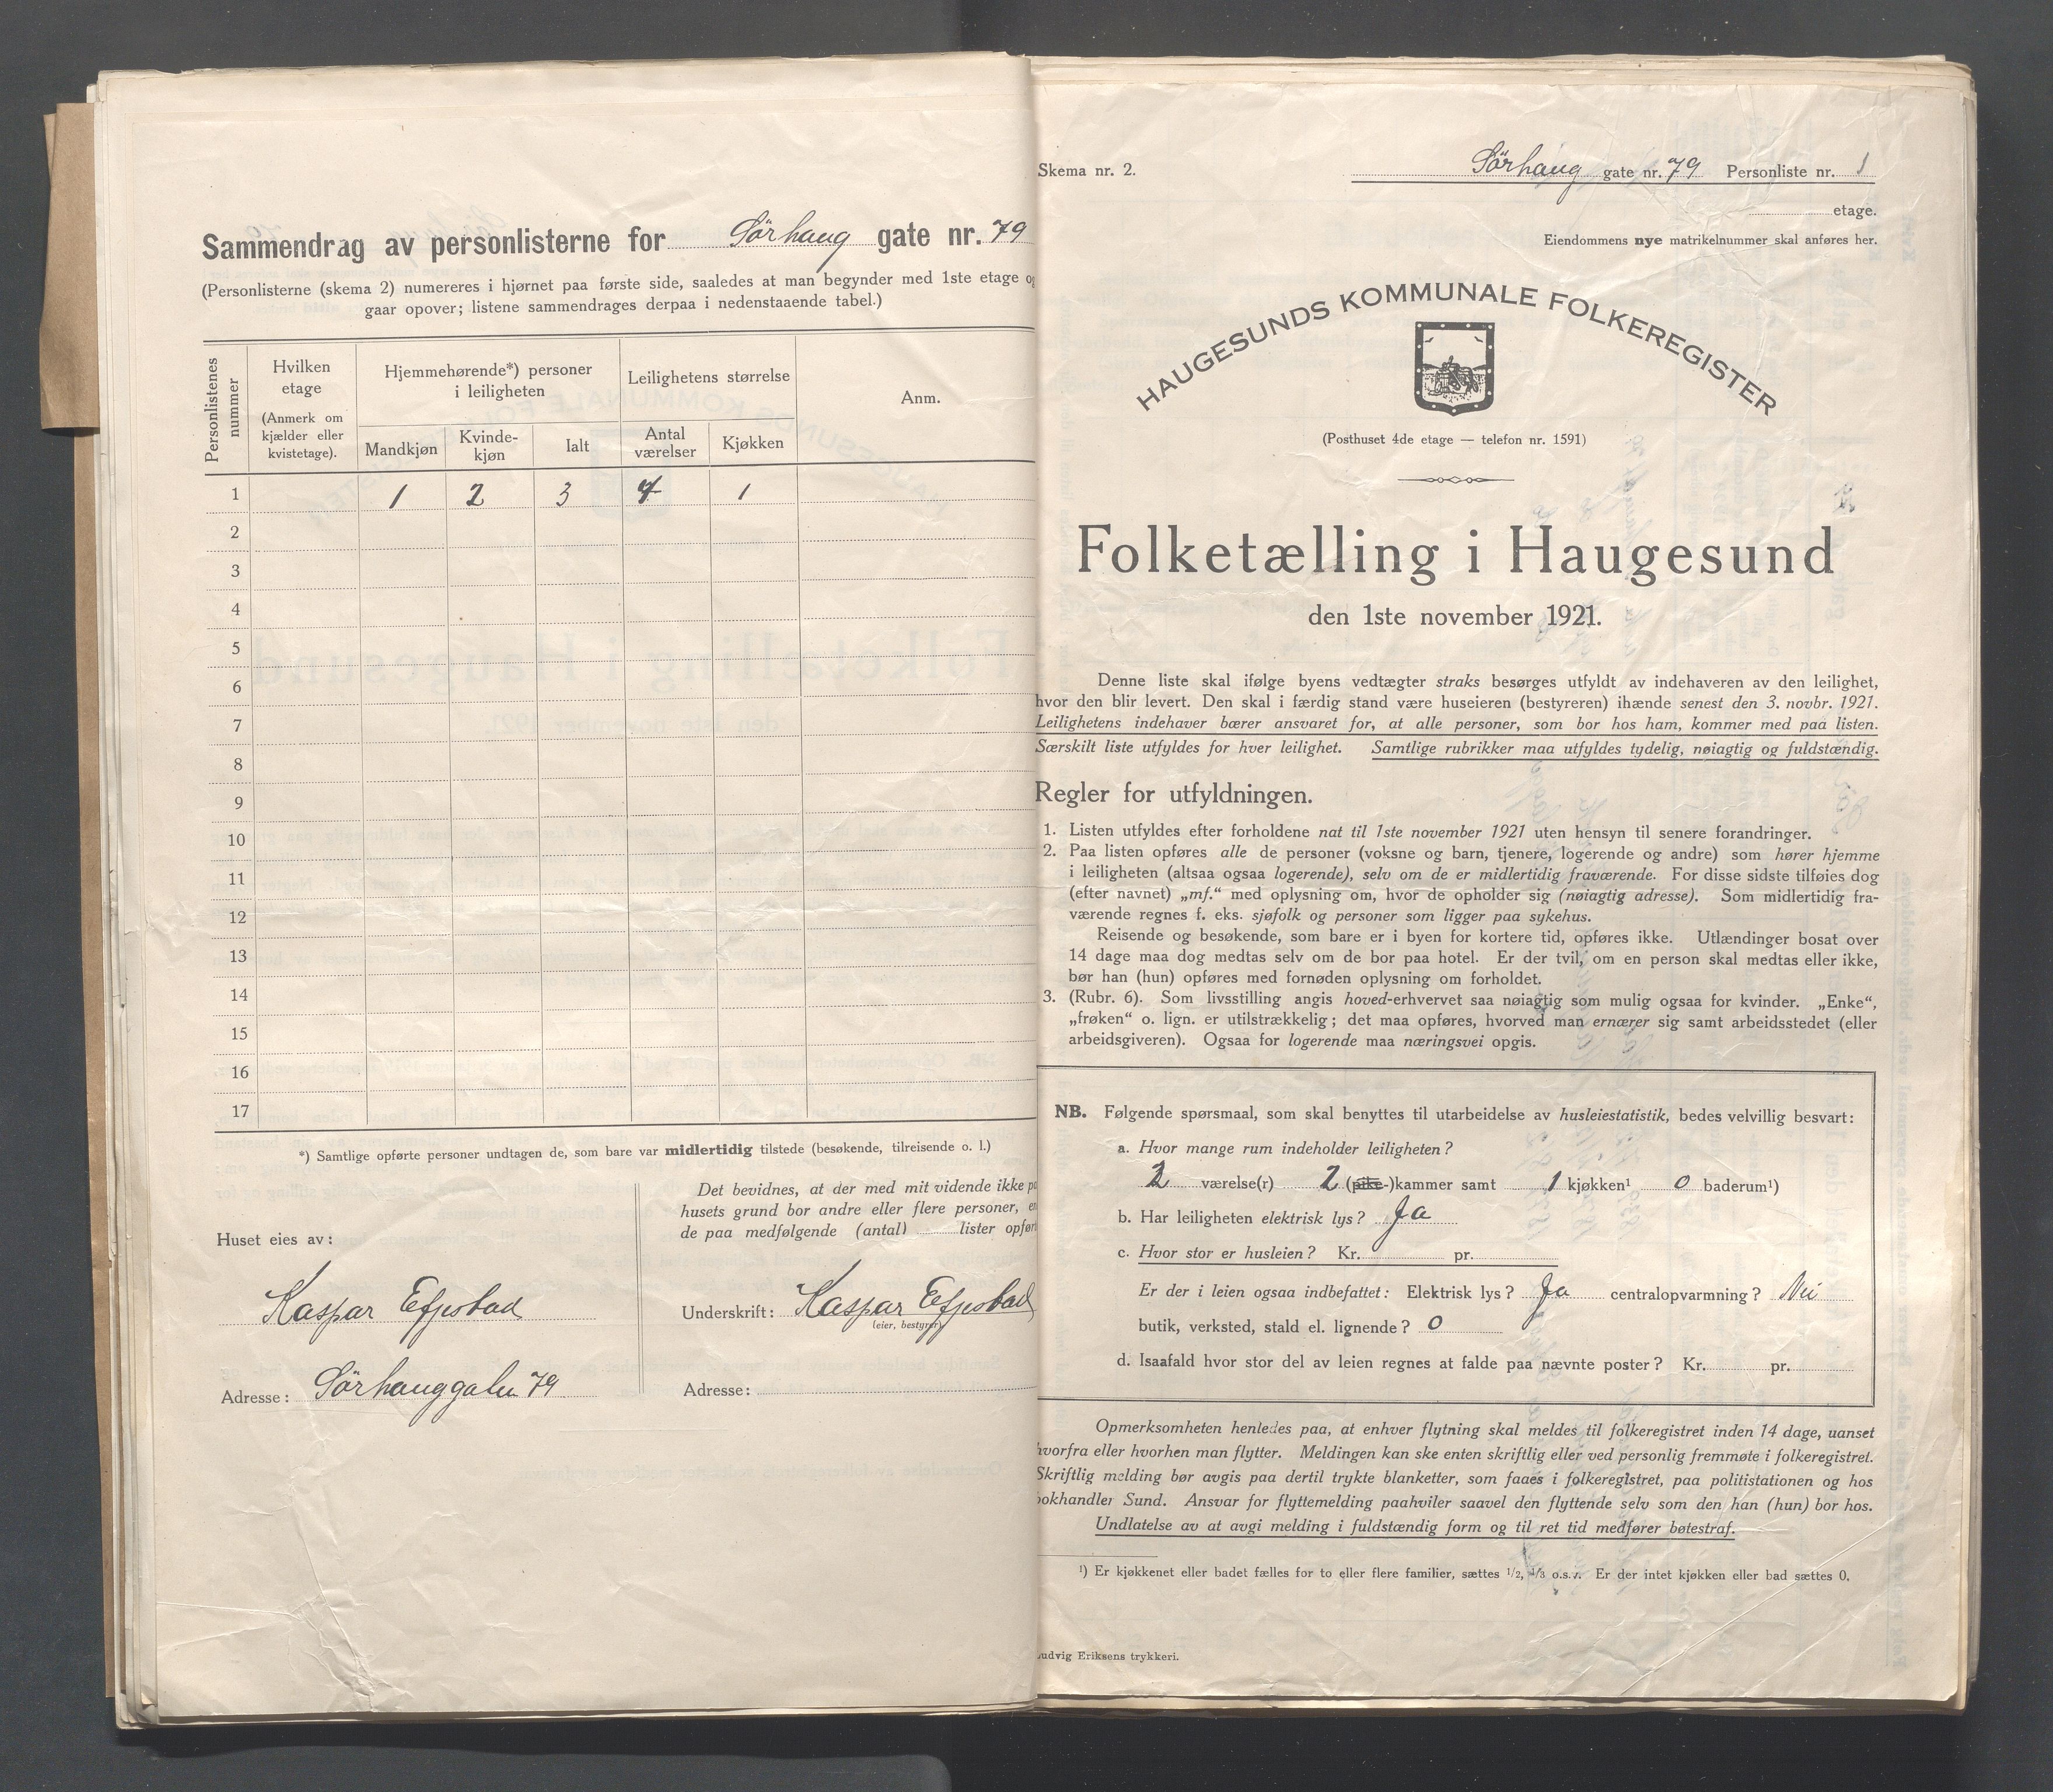 Sammendrag av personlisterne for Sörhaug gate nr. 79
(Personlisterne (skema 2) numereres i hjørnet paa første side, saaledes at man begynder med 1ste etage og
gaar opover; listene sammendrages derpaa i nedenstaaende tabel.)
Personlistenes nummer
Hvilken etage
(Anmerk om kjælder eller kvistetage).
Hjemmehørende*) personer i leiligheten
Mandkjøn
Kvinde-kjøn
Ialt
Leilighetens størrelse
Antal værelser
Kjøkken
Anm.
1 1 2 3 4 1
2
3
4
5
6
7
8
9
10
11
12
13
14
15
16
17
*) Samtlige opførte personer undtagen de, som bare var midlertidig tilstede (besøkende, tilreisende o. l.)
Huset eies av:
Kaspar
Adresse: Sörhauggaten 79
Det bevidnes, at der med mit vidende ikke
husets grund bor andre eller flere personer,
de paa medfølgende (antal) lister
Underskrift: Kaspar
(eier, bestyrer)
Adresse:
Skema nr. 2.
Sörhaug gate nr. 79 Personliste nr. 1
etage.
Eiendommens nye matrikelnummer skal anføres her.
HAUGESUNDS KOMMUNALE FOLKEREGISTER
(Posthuset 4de etage — telefon nr. 1591)
Folketælling i Haugesund
den 1ste november 1921.
Denne liste skal ifølge byens vedtægter straks besørges utfyldt av indehaveren av den leilighet,
hvor den blir levert. Den skal i færdig stand være huseieren (bestyreren) ihænde senest den 3. novbr. 1921.
Leilighetens indehaver bærer ansvaret for, at alle personer, som bor hos ham, kommer med paa listen.
Særskilt liste utfyldes for hver leilighet. Samtlige rubrikker maa utfyldes tydelig, nøiagtig og fuldstændig.
Regler for utfyldningen.
1. Listen utfyldes efter forholdene nat til 1ste november 1921 uten hensyn til senere forandringer.
2. Paa listen opføres alle de personer (voksne og barn, tjenere, logerende og andre) som hører hjemme
i leiligheten (altsaa ogsaa logerende), selv om de er midlertidig fraværende. For disse sidste tilføies dog
(efter navnet) „mf.“ med oplysning om, hvor de opholder sig (nøiagtig adresse). Som midlertidig fra-
værende regnes f. eks. sjøfolk og personer som ligger paa sykehus.
Reisende og besøkende, som bare er i byen for kortere tid, opføres ikke. Utlændinger bosat over
14 dage maa dog medtas selv om de bor paa hotel. Er der tvil, om en person skal medtas eller ikke,
bør han (hun) opføres med fornøden oplysning om forholdet.
3. (Rubr. 6). Som livsstilling angis hoved-erhvervet saa nøiagtig som mulig ogsaa for kvinder. „Enke“,
„frøken“ o. lign. er utilstrækkelig; det maa opføres, hvorved man ernærer sig samt arbeidsstedet (eller
arbeidsgiveren). Ogsaa for logerende maa næringsvei opgis.
NB. Følgende spørsmaal, som skal benyttes til utarbeidelse av husleiestatistik, bedes velvillig besvart:
a. Hvor mange rum indeholder leiligheten?
2 værelse(r) 2 (pike-)kammer samt 1 kjøkken¹ 0 baderum¹)
b. Har leiligheten elektrisk lys? Ja
c. Hvor stor er husleien? Kr. pr.
Er der i leien ogsaa indbefattet: Elektrisk lys? Ja centralopvarmning? Nei
butik, verksted, stald el. lignende? 0
d. Isaafald hvor stor del av leien regnes at falde paa nævnte poster? Kr. pr.
Opmerksomheten henledes paa, at enhver flytning skal meldes til folkeregistret inden 14 dage, uanset
hvorfra eller hvorhen man flytter. Meldingen kan ske enten skriftlig eller ved personlig fremmøte i folkeregistret.
Skriftlig melding bør avgis paa dertil trykte blanketter, som faaes i folkeregistret, paa politistationen og hos
bokhandler Sund. Ansvar for flyttemelding paahviler saavel den flyttende selv som den han (hun) bor hos.
Undlatelse av at avgi melding i fuldstændig form og til ret tid medfører bøtestraf.
¹) Er kjøkkenet eller badet fælles for to eller flere familier, sættes 1/2, 1/3 o.s.v. Er der intet kjøkken eller bad sættes 0.
Ludvig Eriksens trykkeri.